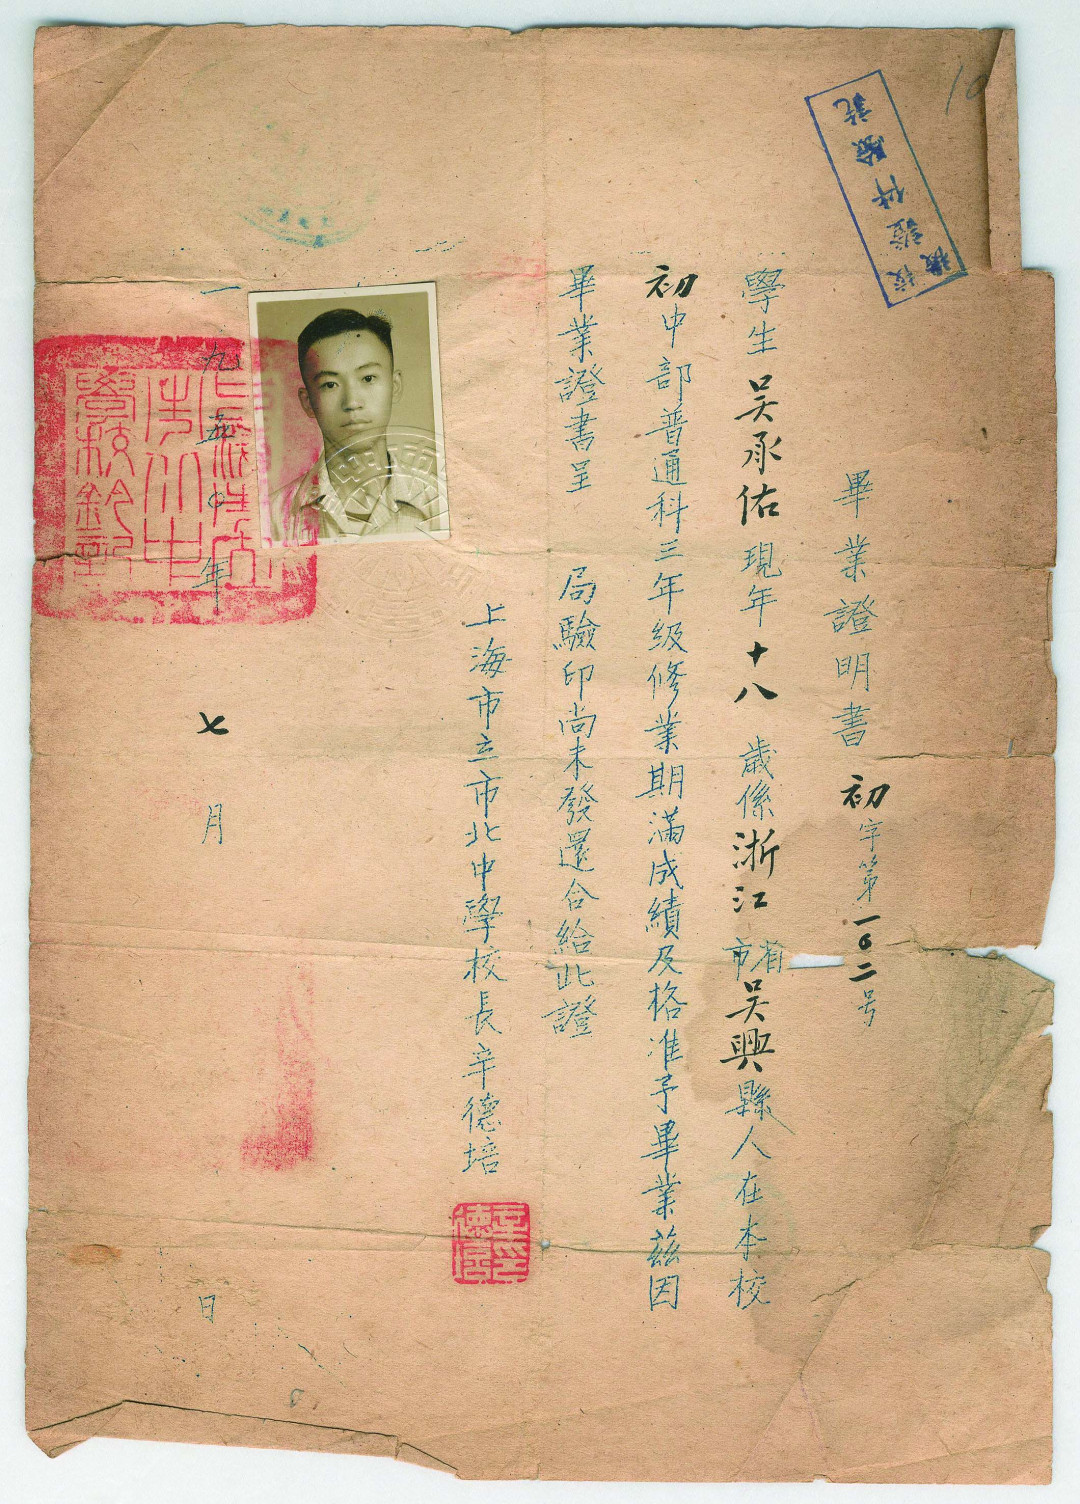 畢業證明書 初字第一〇二号
學生吳承佑現年十八歲係浙江省市吳興縣人在本校
初中部普通科三年級修業期滿成績及格准予畢業茲因
畢業證書呈 局驗印尚未發還合給此證
上海市立市北中學校長辛德培
辛德培
一九五〇年七月 日
驗訖
10